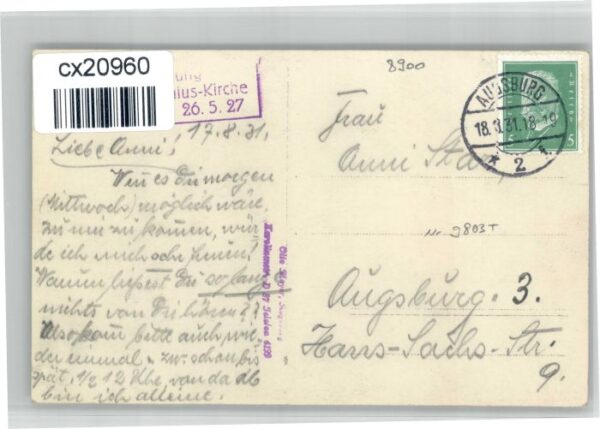 cx20960
ius-Kirche
26.5.27
17.8.31.
Liebe Anni!
Wenn es Dir morgen
(Mittwoch) möglich wäre,
zu mir zu kommen, wür-
de ich mich sehr freuen!
Warum ließest Du so lange
nichts von Dir hören?!
Also komm bitte auch wie-
der einmal - zw. schon bis
spät. 1/2 12 Uhr, von da ab
bin ich alleine.
8900
AUGSBURG
18.3.31.18-19
* 2
5
Frau
Anni
No 9803T
Augsburg. 3.
Hans-Sachs-Str.
9.